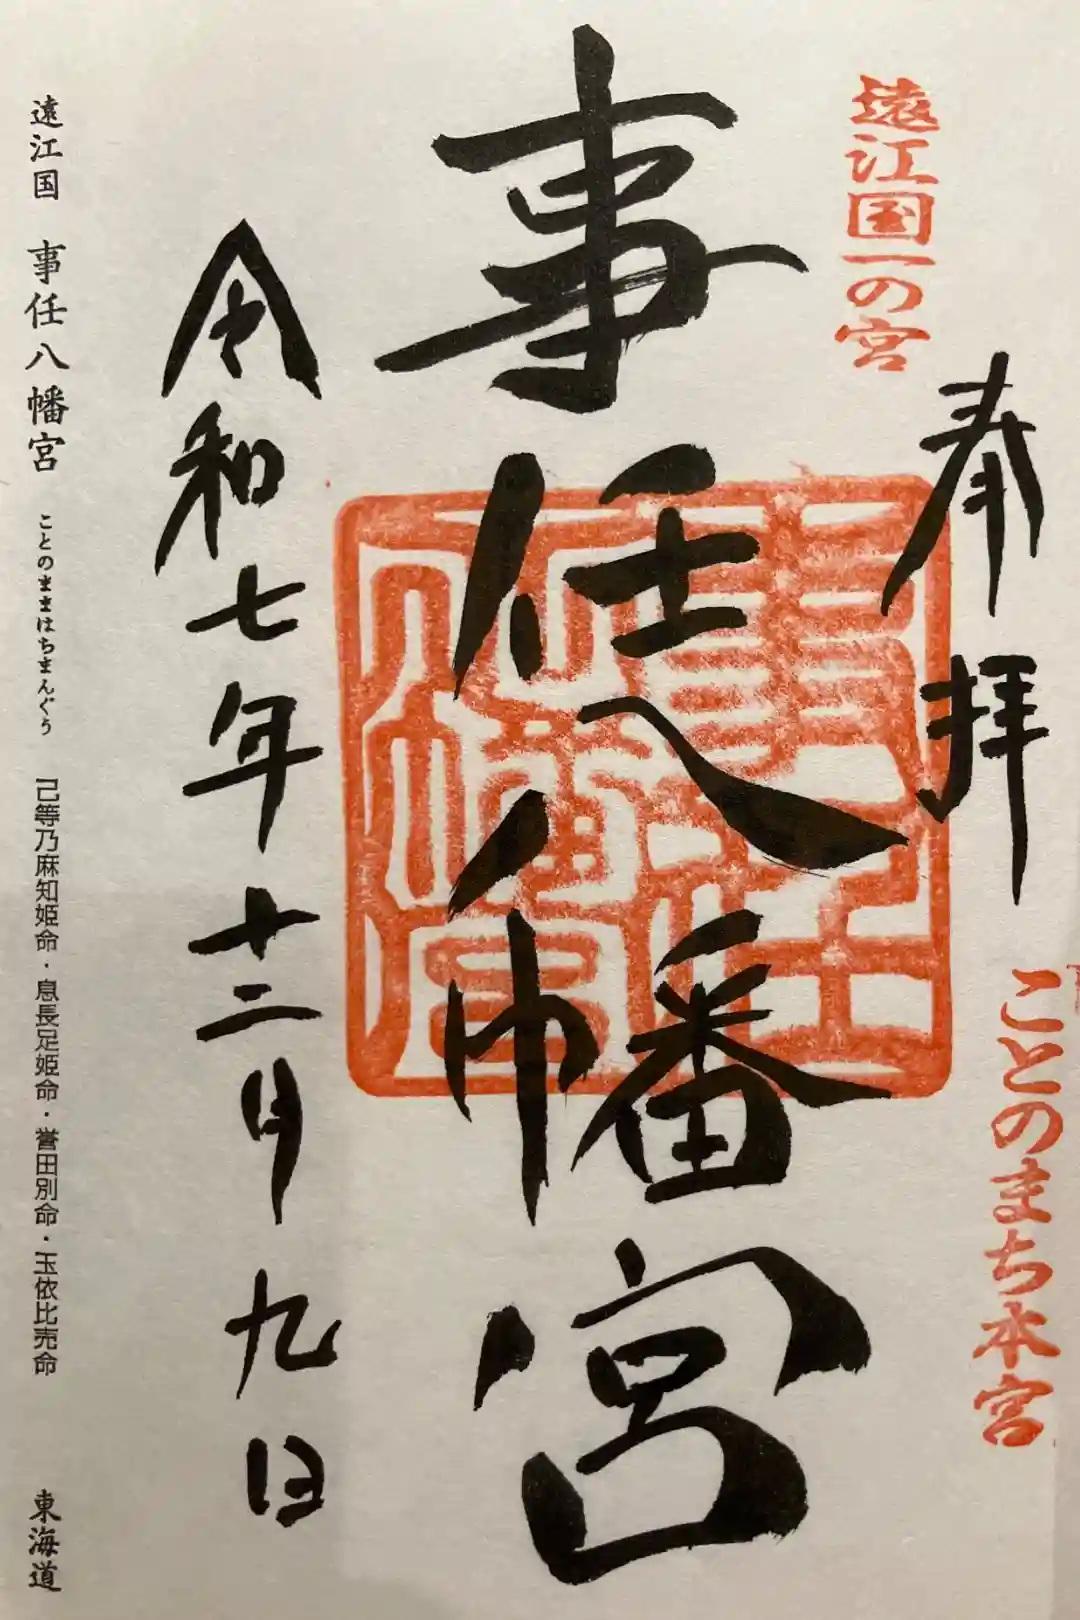 遠江国一の宮
奉拝
ことのまち本宮
事任八幡宮
事任八幡宮
令和七年十二月九日
遠江国 事任八幡宮 ことのままはちまんぐう 己等乃麻知姫命・息長足姫命・誉田別命・玉依比売命 東海道